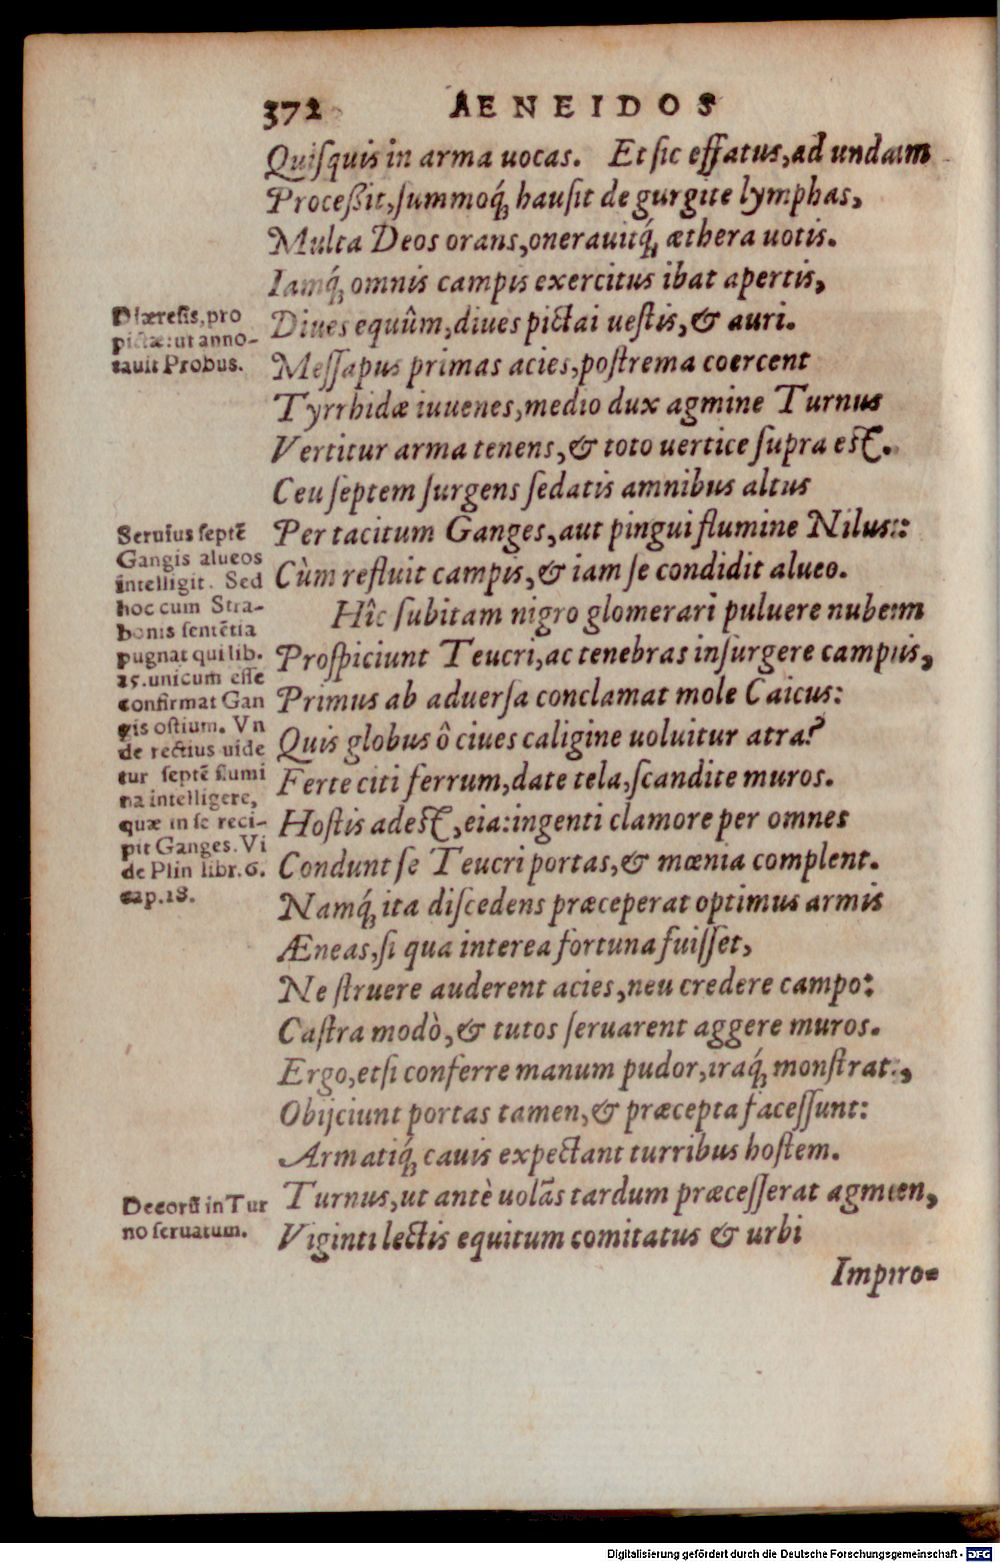 372 AENEIDOS
Quiſquis in arma uocas. Et ſic effatus, ad undam
Proceßit, ſummoq́; hauſit de gurgite lymphas,
Multa Deos orans, onerauitq́; æthera uotis.
Iamq́; omnis campis exercitus ibat apertis,
Diues equûm, diues pictai ueſtis, & auri.
Meſſapus primas acies, poſtrema coercent
Tyrrhidæ iuuenes, medio dux agmine Turnus
Vertitur arma tenens, & toto uertice ſupra eſt.
Ceu ſeptem ſurgens ſedatis amnibus altus
Per tacitum Ganges, aut pingui flumine Nilus:
Cùm refluit campis, & iam ſe condidit alueo.
Hîc ſubitam nigro glomerari puluere nubem
Proſpiciunt Teucri, ac tenebras inſurgere campis,
Primus ab aduerſa conclamat mole Caicus:
Quis globus ô ciues caligine uoluitur atra?
Ferte citi ferrum, date tela, ſcandite muros.
Hoſtis adeſt, eia: ingenti clamore per omnes
Condunt ſe Teucri portas, & mœnia complent.
Namq́; ita diſcedens præceperat optimus armis
Æneas, ſi qua interea fortuna fuiſſet,
Ne ſtruere auderent acies, neu credere campo:
Caſtra modò, & tutos ſeruarent aggere muros.
Ergo, etſi conferre manum pudor, iraq́; monſtrat,
Obijciunt portas tamen, & præcepta faceſſunt:
Armatiq́; cauis expectant turribus hoſtem.
Turnus, ut antè uolãs tardum præceſſerat agmen,
Viginti lectis equitum comitatus & urbi
Impro-
Diæreſis, pro
pictæ: ut anno-
tauit Probus.
Seruius ſeptẽ
Gangis alueos
intelligit. Sed
hoc cum Stra-
bonis ſentẽtia
pugnat qui lib.
15. unicum eſſe
confirmat Gan
gis oſtium. Vn
de rectius uide
tur ſeptẽ flumi
na intelligere,
quæ in ſe reci-
pit Ganges. Vi
de Plin libr. 6.
cap. 18.
Decorũ in Tur
no ſeruatum.
Digitalisierung gefördert durch die Deutsche Forschungsgemeinschaft - DFG